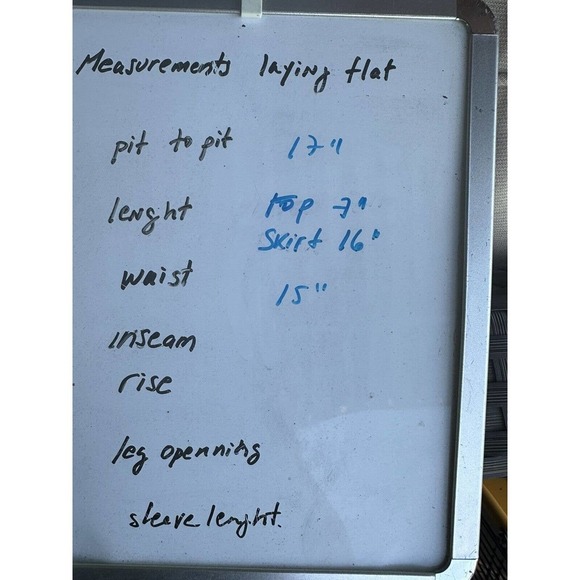 Measurements laying flat
pit to pit 17"
lenght top 7"
Skirt 16"
waist 15"
inseam
rise
leg openning
sleeve lenght.